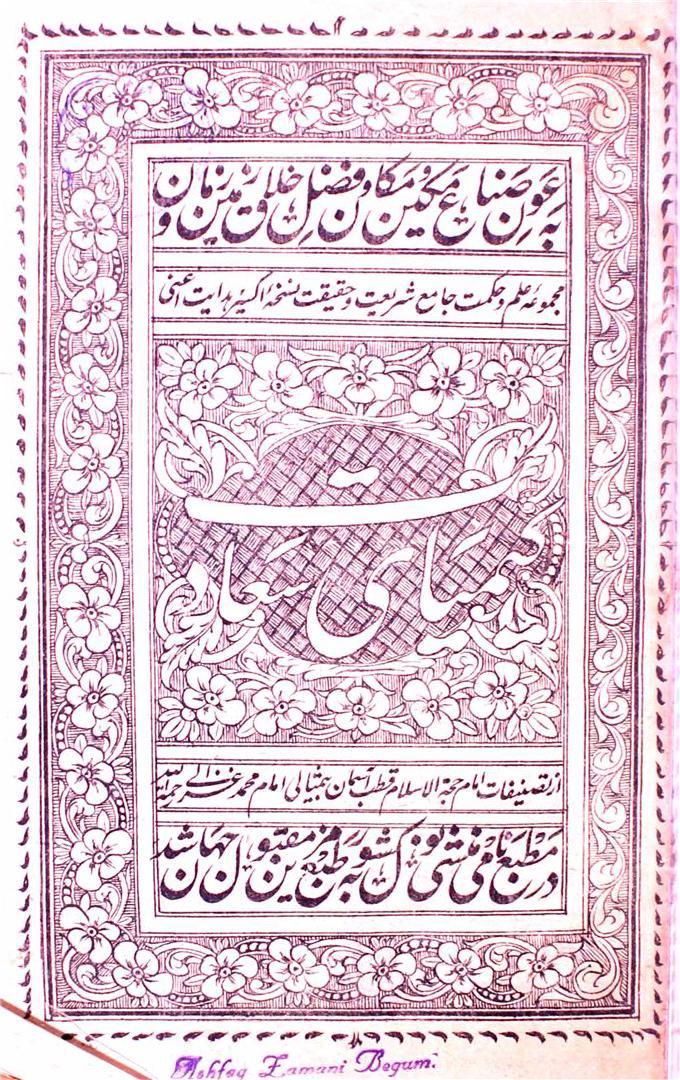 به عون صناع مکین و مکان و فضل خلاق زمین و زمان
مجموعهٔ علم و حکمت جامع شریعت و حقیقت نسخهٔ اکسیر هدایت اعنی
کیمیای سعادت
از تصنیفات امام حجة الاسلام قطب آسمان بیمثالی امام محمد غزالی رحمه الله
در مطبع نامی منشی نولکشور به طبع مزین مقبول جهان شد
Ashfaq Zamani Begum.